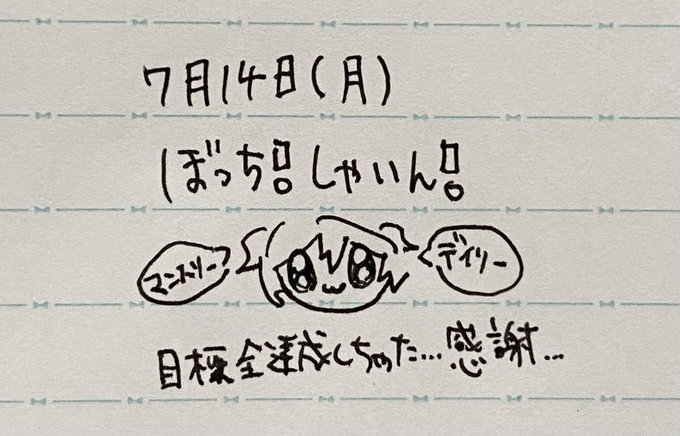 7月14日(月)
ぼっち!しゃいん!
マンスリー
デイリー
目標全達成しちゃった…感謝…